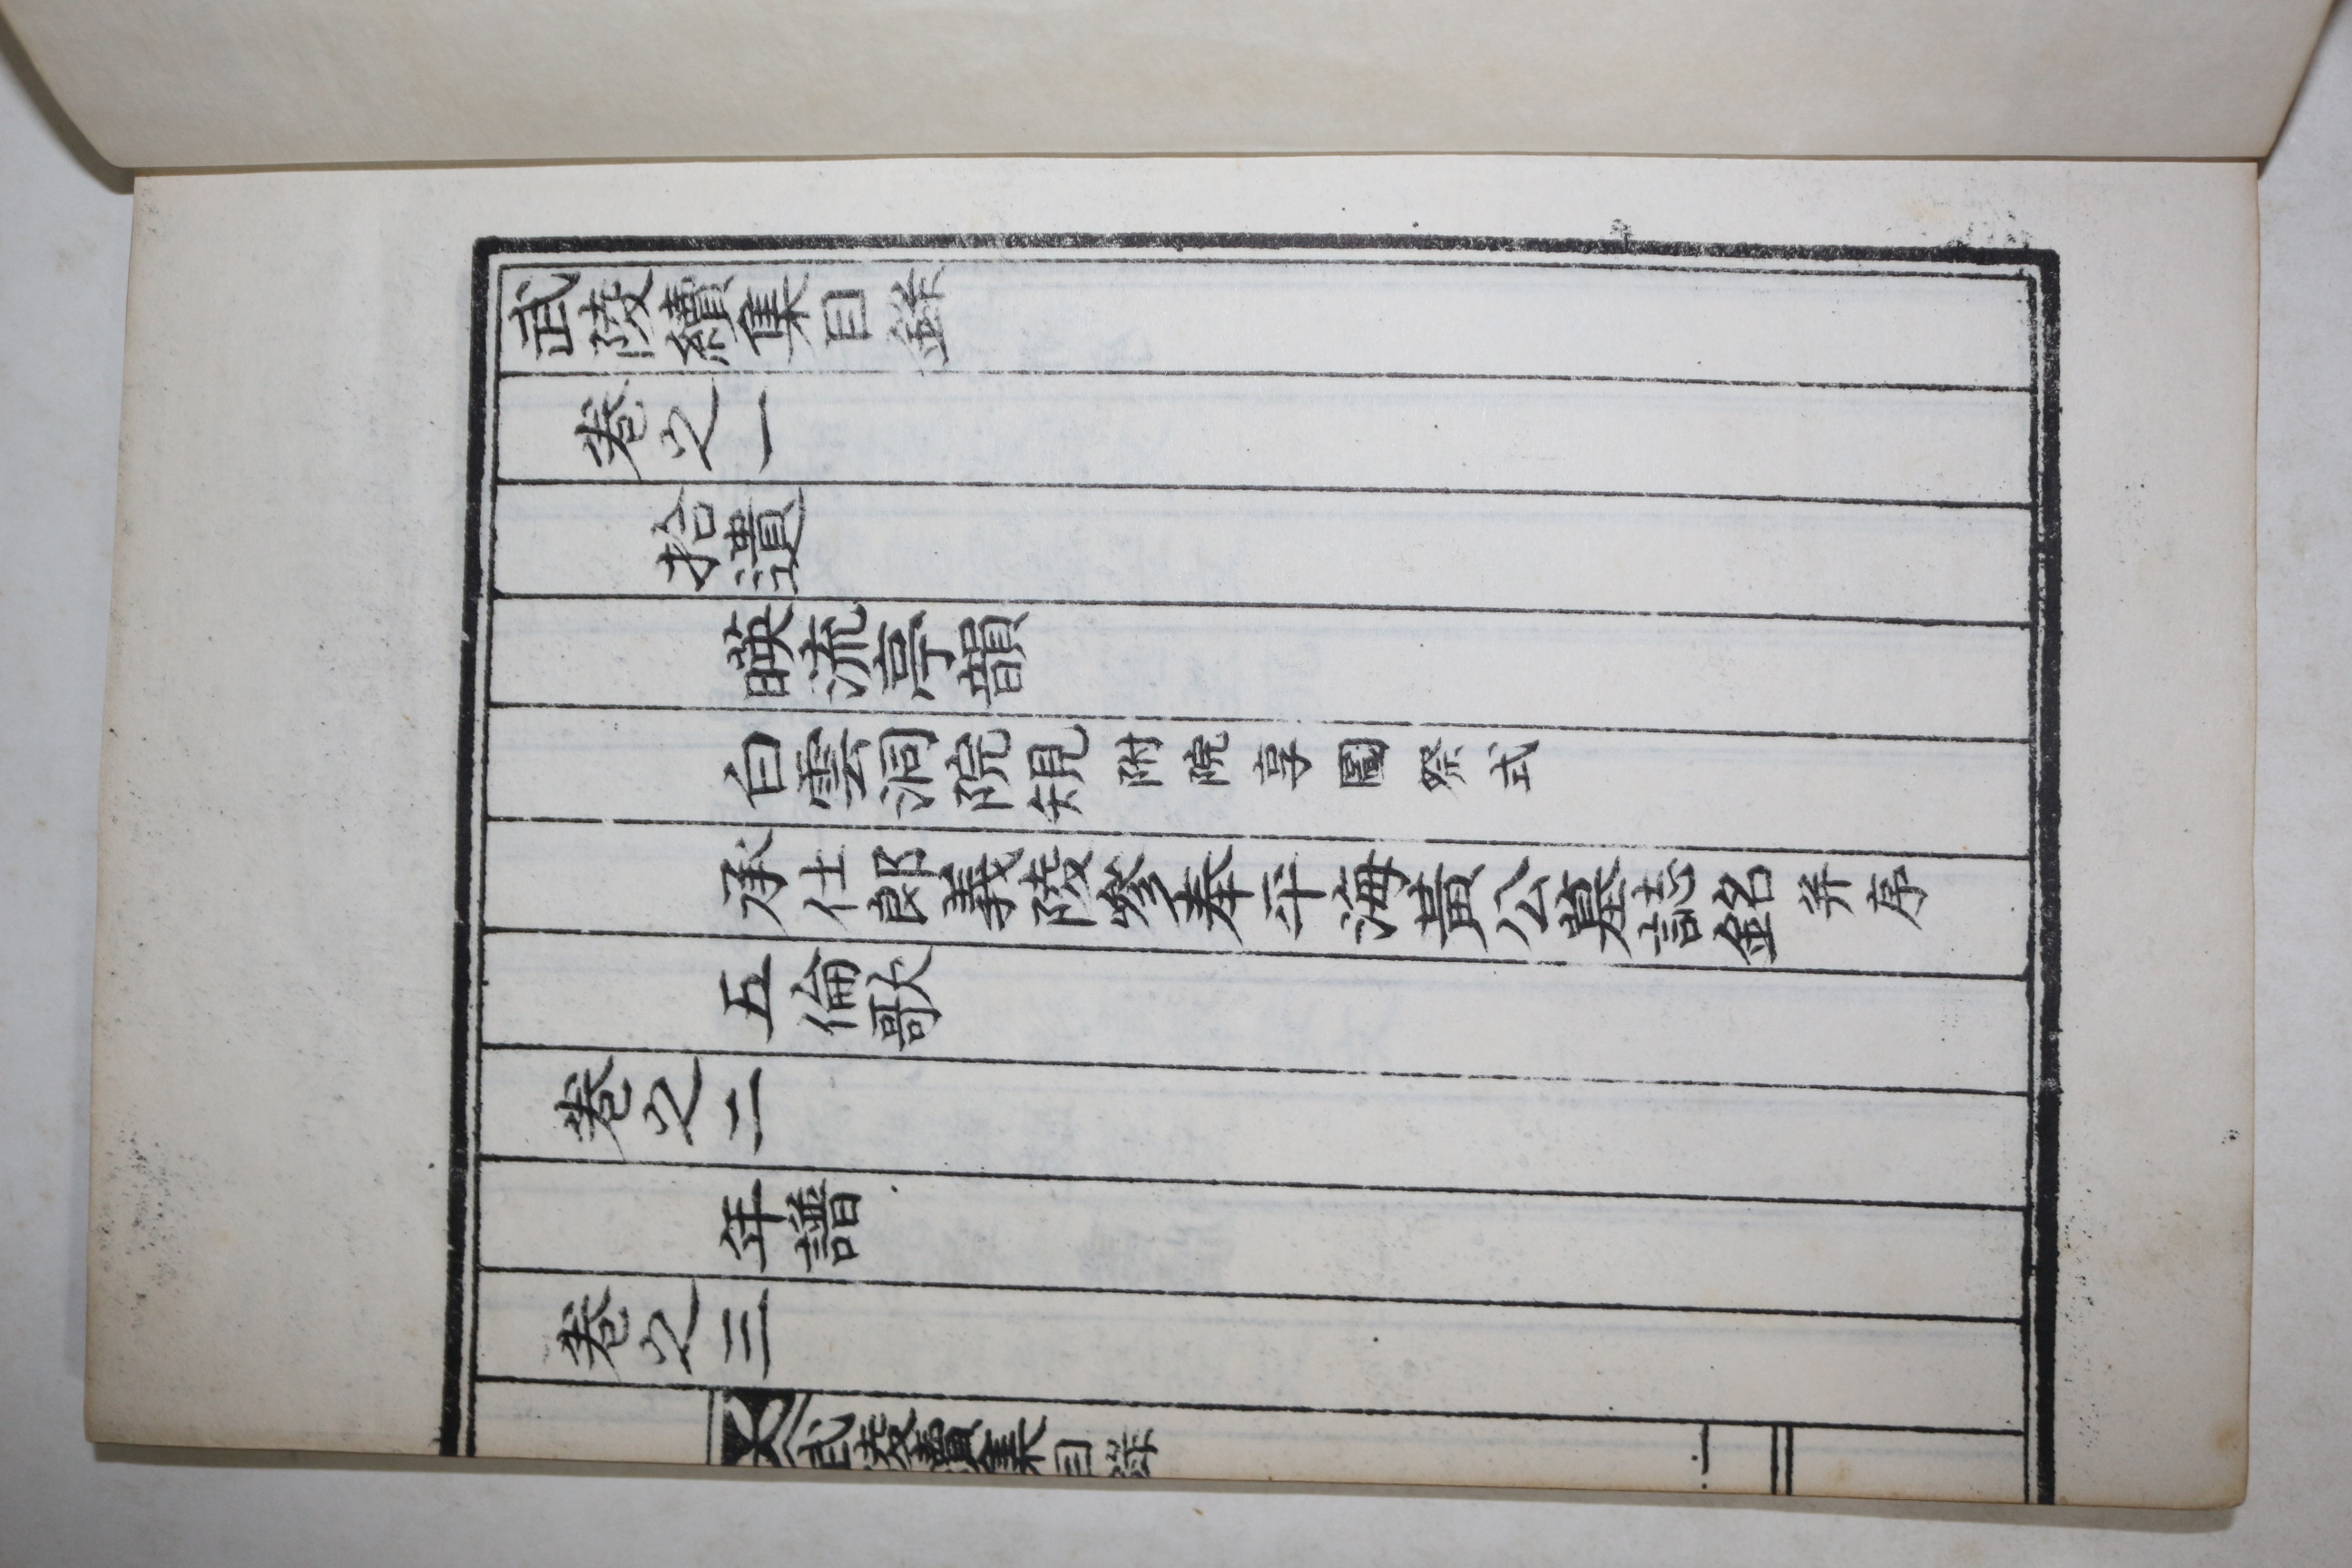 武陵續集目錄
卷之一
拾遺
暎流亭韻
白雲洞院規附院享圖祭式
承仕郎義陵參奉平海黃公墓誌銘并序
五倫歌
卷之二
年譜
卷之三
武陵續集目錄
一